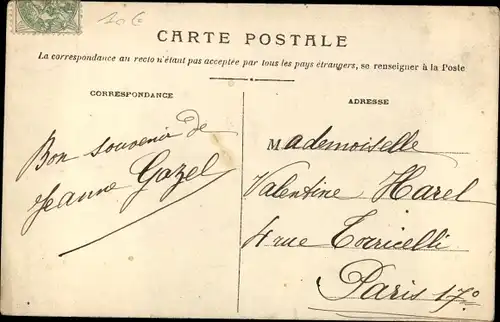 CARTE POSTALE
La correspondance au recto n'étant pas acceptée par tous les pays étrangers, se renseigner à la Poste
CORRESPONDANCE
Bon souvenir de
Jeanne Gazel
ADRESSE
Mademoiselle
Valentine Harel
4 rue Torricelli
Paris 17º